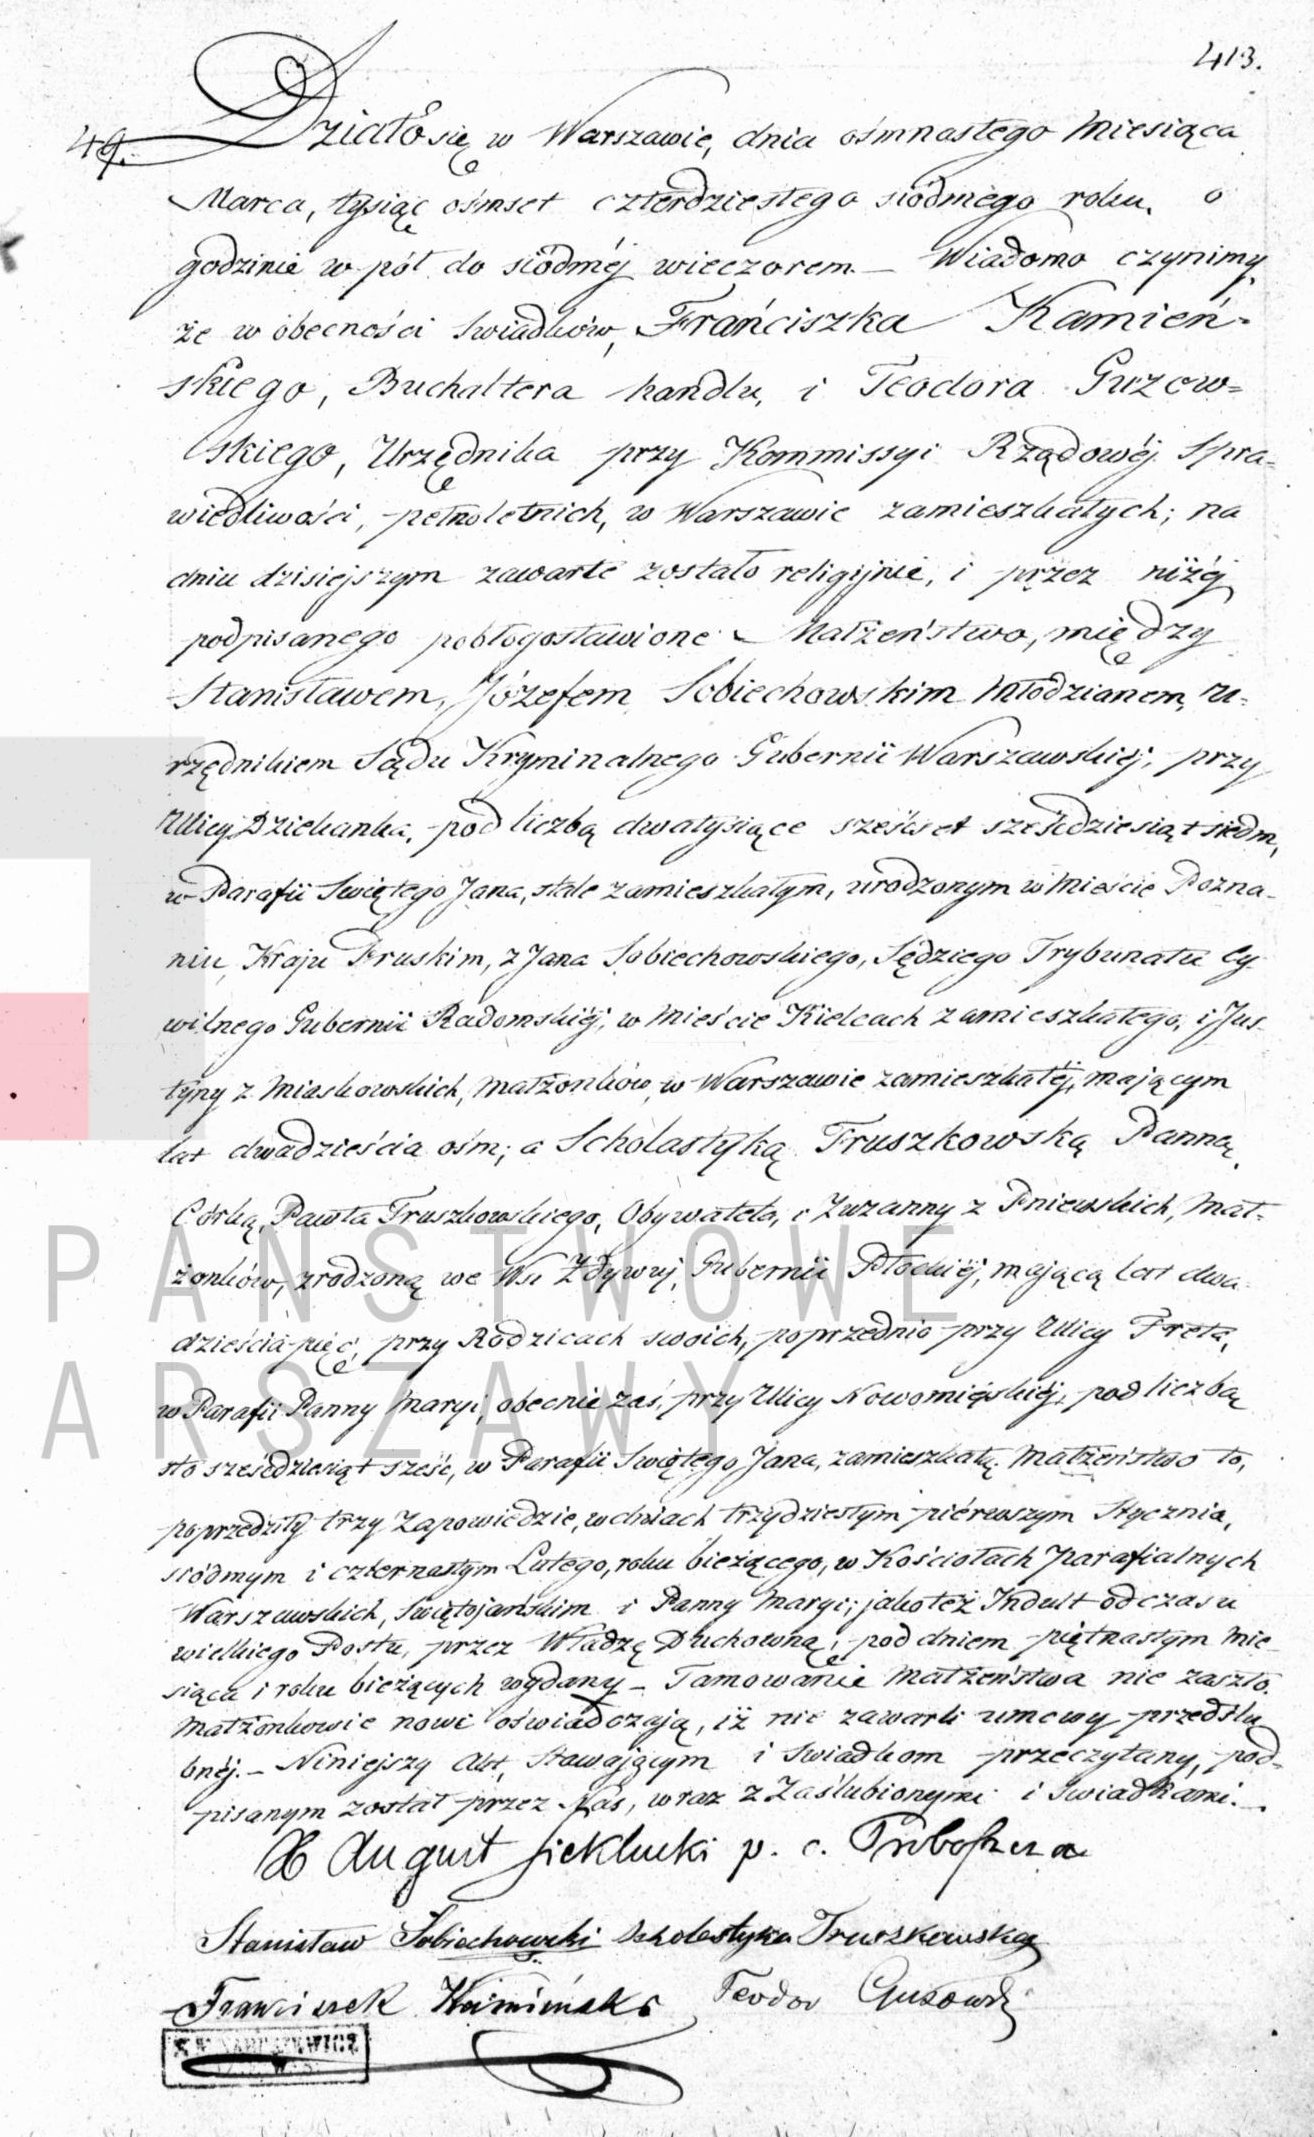 413.
49.
Działo się w Warszawie, dnia ośmnastego Miesiąca
Marca, tysiąc ośmset czterdziestego siódmego roku, o
godzinie w pół do siódméj wieczorem – Wiadomo czynimy,
że w obecności świadków, Franciszka Kamień-
skiego, Buchaltera handlu, i Teodora Guzow=
skiego, Urzędnika przy Kommissyi Rządowéj Spra-
wiedliwości, pełnoletnich, w Warszawie zamieszkałych; na
dniu dzisiejszym zawarte zostało religijnie, i przez niżéj
podpisanego pobłogosławione Małżeństwo, między
Stanisławem, Józefem Sobiechowskim Młodzianem, U-
rzędnikiem Sądu Kryminalnego Gubernii Warszawskiéj, przy
Ulicy Dziekanka, pod liczbą dwatysiące sześćset sześćdziesiąt siedm,
w Parafii Świętego Jana, stale zamieszkałym, urodzonym w Mieście Pozna-
niu, Kraju Pruskim, z Jana Sobiechowskiego, Sędziego Trybunału Cy-
wilnego Gubernii Radomskiéj, w Mieście Kielcach zamieszkałego, i Jus-
tyny z Miaskowskich, Małżonków, w Warszawie zamieszkałéj, mającym
lat dwadzieścia ośm; a Scholastyką Truszkowską Panną,
Córką, Pawła Truszkowskiego, Obywatela, i Zuzanny z Pniewskich, Mał-
żonków, zrodzoną we Wsi Żdywuj, Gubernii Płockiéj, mającą lat dwa-
dzieścia pięć, przy Rodzicach swoich, poprzednio przy Ulicy Freta,
w Parafii Panny Maryi, obecnie zaś, przy Ulicy Nowomiejskiéj, pod liczbą
sto sześćdziesiąt sześć, w Parafii Świętego Jana, zamieszkałą. Małżeństwo to,
poprzedziły trzy Zapowiedzie, w dniach trzydziestym piérwszym Stycznia,
siódmym i czternastym Lutego, roku bieżącego, w Kościołach Parafialnych
Warszawskich, Świętojańskim i Panny Maryi; jakoteż Indult od czasu
wielkiego Postu, przez Władzę Duchowną, pod dniem piętnastym Mie-
siąca i roku bieżących wydany – Tamowanie Małżeństwa nie zaszło.
Małżonkowie nowi oświadczają, iż nie zawarli umowy przedślu
bnéj. – Niniejszy Akt, Stawającym i Świadkom przeczytany, pod-
pisanym został przez Nas, wraz z Zaślubionymi i Świadkami. –
X August Sieklucki p. o. Proboszcza
Stanisław Sobiechowski Scholastyka Truszkowska
Franciszek Kamiński Teodor Guzowski
PAŃSTWOWE
ARSZAWY